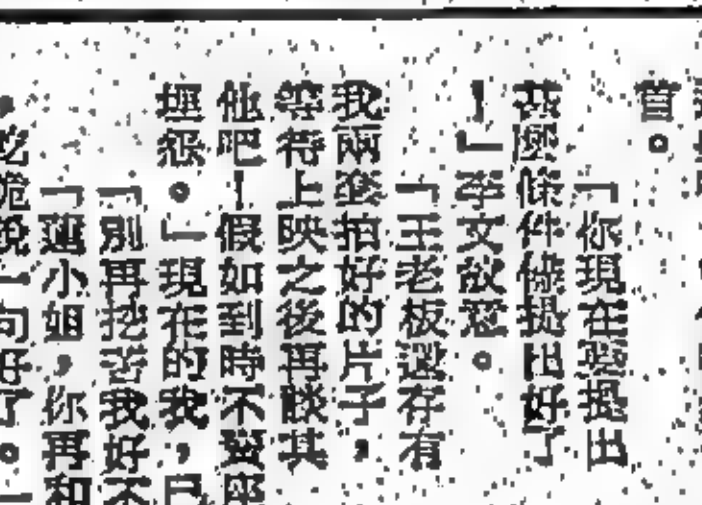 首。
「你現在要提出
甚麼條件儘提出好了
！」李文欲寬。
「王老板還存有
我兩套拍好的片子，
等待上映之後再談其
他吧！假如到時不賣座
埋怨。」現在的我，已
「別再挖苦我好不
「蓮小姐，你再和
說一句好了。